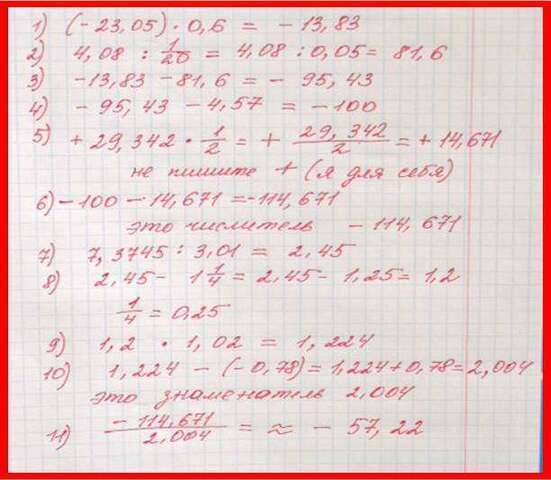 1) (-23,05) · 0,6 = -13,83
2) 4,08 : 1/20 = 4,08 : 0,05 = 81,6
3) -13,83 - 81,6 = - 95,43
4) - 95,43 - 4,57 = -100
5) + 29,342 · 1/2 = + 29,342/2 = + 14,671
не пишите + (я для себя)
6) -100 - 14,671 = -114,671
это числитель - 114,671
7) 7,3745 : 3,01 = 2,45
8) 2,45 - 1 1/4 = 2,45 - 1,25 = 1,2
1/4 = 0,25
9) 1,2 · 1,02 = 1,224
10) 1,224 - (-0,78) = 1,224 + 0,78 = 2,004
это знаменатель 2,004
11) -114,671/2,004 = ≈ - 57,22